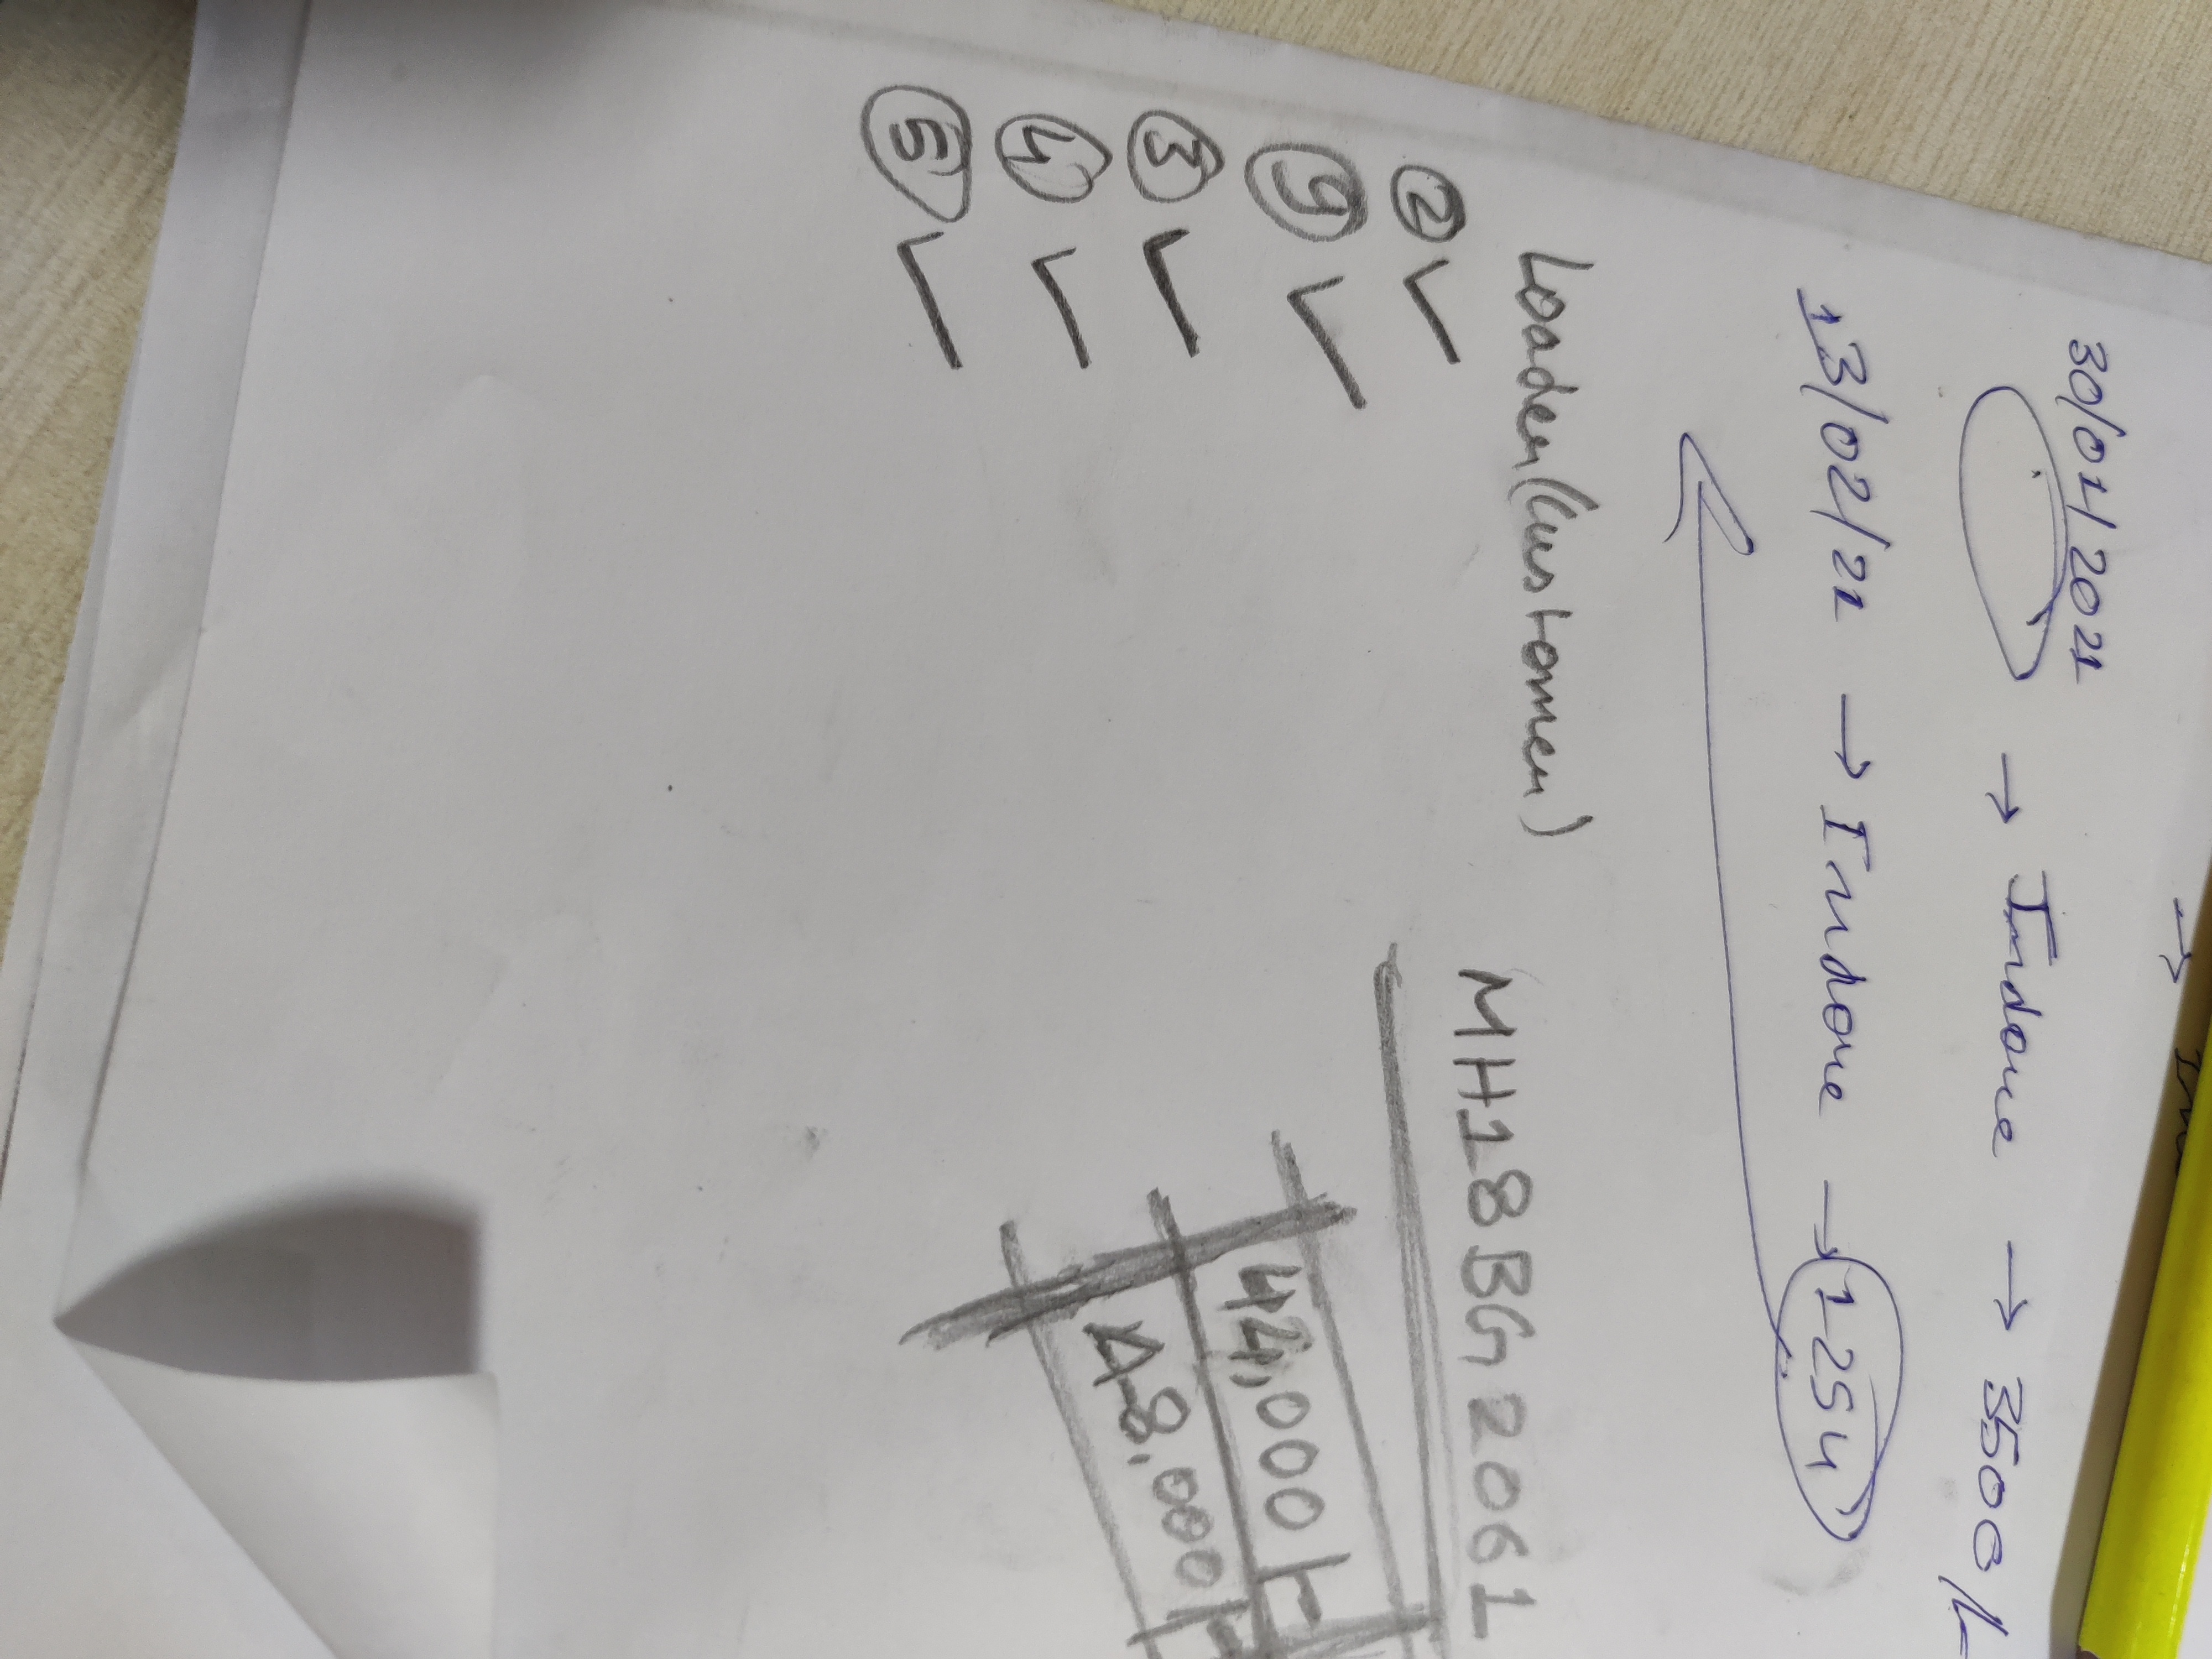 30/01/2021
→ Indore → 3500/-
13/02/21 → Indore → 1254
Loader(Customer) MH18BG2061
② ✓
✓
③ ✓
④ ✓
⑤ ✓
44,000/-
48,000/-